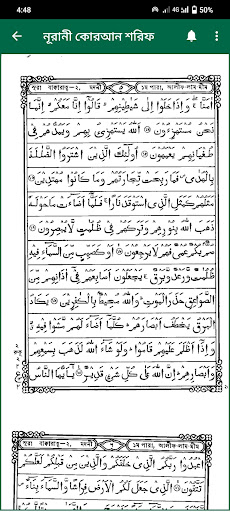 4:48
4G 52%
নূরানী কোরআন শরিফ
সূরা বাক্বারাহ-২, মদনী ৫ ১ম পারা, আলীফ-লাম মীম
اٰمَنَّا وَاِذَا خَلَوْا اِلٰى شَيٰطِيْنِهِمْ قَالُوْٓا اِنَّا مَعَكُمْ اِنَّمَا
نَحْنُ مُسْتَهْزِءُوْنَ اَللّٰهُ يَسْتَهْزِئُ بِهِمْ وَيَمُدُّهُمْ فِىْ
طُغْيَانِهِمْ يَعْمَهُوْنَ اُولٰٓئِكَ الَّذِيْنَ اشْتَرَوُا الضَّلٰلَةَ
بِالْهُدٰى فَمَا رَبِحَتْ تِّجَارَتُهُمْ وَمَا كَانُوْا مُهْتَدِيْنَ
مَثَلُهُمْ كَمَثَلِ الَّذِى اسْتَوْقَدَ نَارًا فَلَمَّآ اَضَآءَتْ مَا حَوْلَهٗ
ذَهَبَ اللّٰهُ بِنُوْرِهِمْ وَتَرَكَهُمْ فِىْ ظُلُمٰتٍ لَّا يُبْصِرُوْنَ
صُمٌّۢ بُكْمٌ عُمْىٌ فَهُمْ لَا يَرْجِعُوْنَ اَوْ كَصَيِّبٍ مِّنَ السَّمَآءِ فِيْهِ
ظُلُمٰتٌ وَّرَعْدٌ وَّبَرْقٌ يَجْعَلُوْنَ اَصَابِعَهُمْ فِىْٓ اٰذَانِهِمْ مِّنَ
الصَّوَاعِقِ حَذَرَ الْمَوْتِ وَاللّٰهُ مُحِيْطٌۢ بِالْكٰفِرِيْنَ يَكَادُ
الْبَرْقُ يَخْطَفُ اَبْصَارَهُمْ كُلَّمَآ اَضَآءَ لَهُمْ مَّشَوْا فِيْهِ
وَاِذَآ اَظْلَمَ عَلَيْهِمْ قَامُوْا وَلَوْ شَآءَ اللّٰهُ لَذَهَبَ بِسَمْعِهِمْ
وَاَبْصَارِهِمْ اِنَّ اللّٰهَ عَلٰى كُلِّ شَىْءٍ قَدِيْرٌ يٰٓاَيُّهَا النَّاسُ
সূরা বাক্বারাহ-২, মদনী ১ম পারা, আলীফ-লাম মীম
اعْبُدُوْا رَبَّكُمُ الَّذِىْ خَلَقَكُمْ وَالَّذِيْنَ مِنْ قَبْلِكُمْ لَعَلَّكُمْ
تَتَّقُوْنَ الَّذِىْ جَعَلَ لَكُمُ الْاَرْضَ فِرَاشًا وَّالسَّمَآءَ بِنَآءً